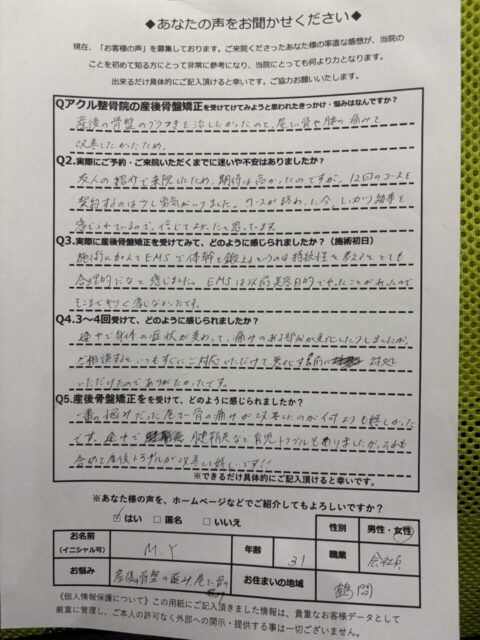 ◆あなたの声をお聞かせください◆
現在、「お客様の声」を募集しております。ご来院くださったあなた様の率直な感想が、当院の
ことを初めて知る方にとって非常に参考になり、当院にとっても何より力となります。
出来るだけ具体的にご記入頂けると幸いです。ご協力お願いいたします。
Qアクル整骨院の産後骨盤矯正を受けてみようと思われたきっかけ・悩みはなんですか?
産後の骨盤のグラつきを治したかったので。尾てい骨や腰の痛みを
改善したかったため。
Q2.実際にご予約・ご来院いただくまでに迷いや不安はありましたか?
友人の紹介で来院したため、期待は高かったのですが、12回のコースを
契約するのは少し勇気がいりました。コースが終わった今、しっかり効果を
感じられているので、信じてよかったと思ってます。
Q3.実際に産後骨盤矯正を受けてみて、どのように感じられましたか?(施術初日)
施術に加えてEMSで体幹を鍛えるというのは持続性を考えるととても
合理的だなと感じました。EMSは以前美容目的でやったことがあったので
そこまでキツく感じなかったです。
Q4.3〜4回受けて、どのように感じられましたか?
途中で身体の症状が変わって、痛みのある部分が変化したりしましたが、
ご相談するといつもすぐにご対応いただけて悪化する前に対処
いただけたのでありがたかったです。
Q5.産後骨盤矯正を受けて、どのように感じられましたか?
一番の悩みだった尾てい骨の痛みが改善したのが何よりも嬉しかった
です。途中で腱鞘炎など育児トラブルもありましたが、それも
含めて産後トラブルが改善して嬉しいです!!
※できるだけ具体的にご記入頂けると幸いです。
※あなた様の声を、ホームページなどでご紹介してもよろしいですか?
☑はい □匿名 □いいえ
性別 男性・女性
お名前 (イニシャル可) M.Y 年齢 31 職業 会社員
お悩み 産後の骨盤の歪み、尾てい骨の お住まいの地域 鶴間
《個人情報保護について》この用紙にご記入頂きました情報は、貴重なお客様データとして
厳重に管理し、ご本人の許可なく外部への開示・提供する事は一切ございません。